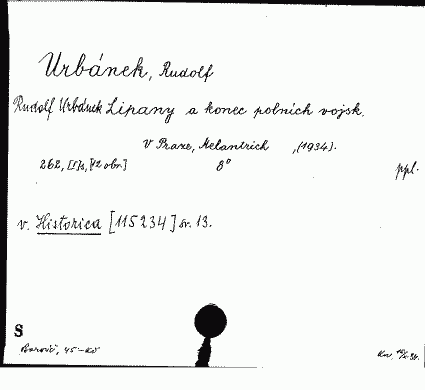 Urbánek, Rudolf
Rudolf Urbánek Lipany a konec polních vojsk.
V Praze, Melantrich ,(1934).
262, [I]s, [12 obr.] 8° ppl.
v. Historica [115234] sv. 13.
S